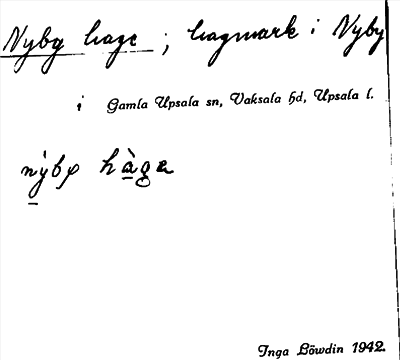 Nyby hage ; hagmark i Nyby
i Gamla Upsala sn, Vaksala hd, Upsala l.
nỳbγ hàga
Inga Löwdin 1942.